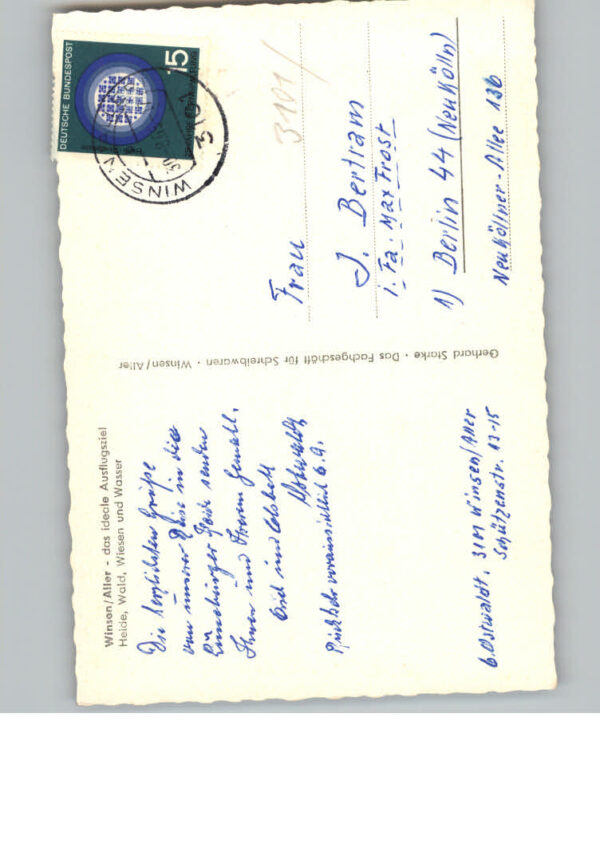 Winsen/Aller - das ideale Ausflugsziel
Heide, Wald, Wiesen und Wasser
Die herzlichsten Grüße
von unserer Reise in die
Lüneburger Heide senden
Ihnen und Ihrem Gemahl.
Erich und Elsbeth
Ostwaldt
Rückkehr voraussichtlich 6.9.
b. Ostwaldt, 3101 Winsen/Aller
Schützenstr. 13-15
Gerhard Starke · Das Fachgeschäft für Schreibwaren · Winsen/Aller
DEUTSCHE BUNDESPOST
15
WINSEN
3101
3101/
Frau
J. Bertram
i. Fa. Max Frost
1) Berlin 44 (Neukölln)
Neuköllner-Allee 136